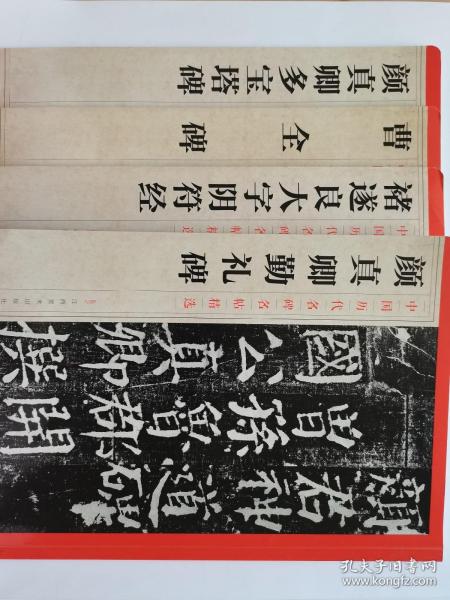 颜真卿多宝塔碑
曹全碑
褚遂良大字阴符经
中国历代名碑名帖精选
颜真卿勤礼碑
中国历代名碑名帖精选
江西美术出版社
顏君神道碑
曾孫魯郡開
國公真卿撰
孔夫子旧书网
www.kongfz.com